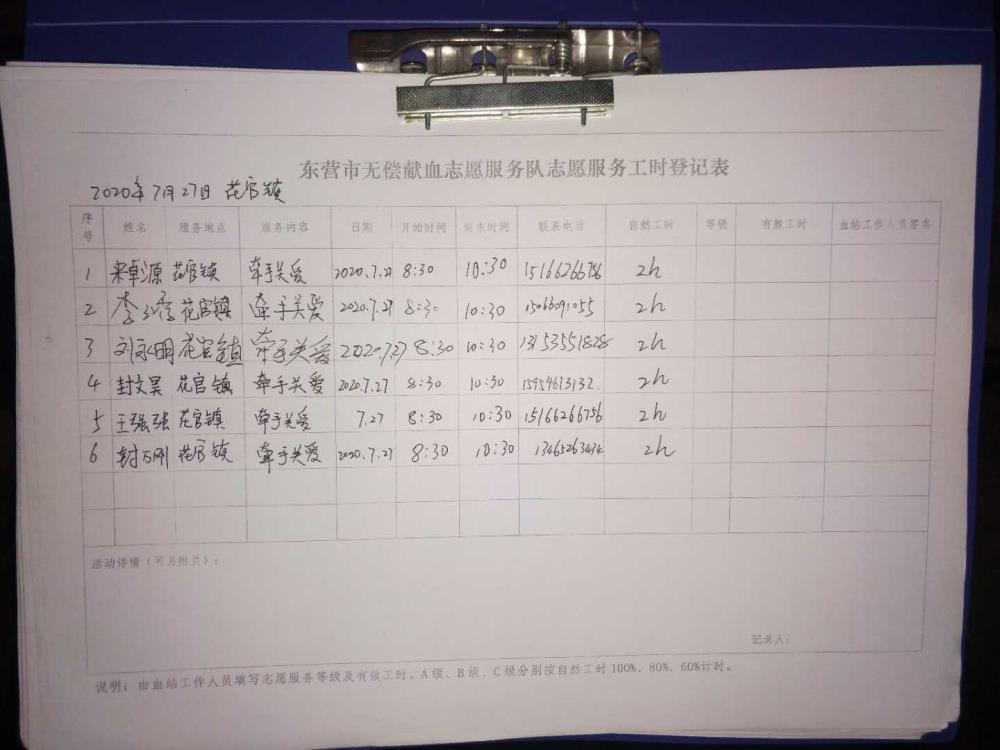 东营市无偿献血志愿服务队志愿服务工时登记表
2020年7月27日 花官镇
序号 姓名 服务地点 服务内容 日期 开始时间 结束时间 联系电话 自然工时 等级 有效工时 血站工作人员签名
1 宋卓源 花官镇 牵手关爱 2020.7.27 8:30 10:30 15166266756 2h
2 李 花官镇 牵手关爱 2020.7.27 8:30 10:30 15066091055 2h
3 刘永明 花官镇 牵手关爱 2020.7.27 8:30 10:30 13153551828 2h
4 封文昊 花官镇 牵手关爱 2020.7.27 8:30 10:30 15954673132 2h
5 王强强 花官镇 牵手关爱 7.27 8:30 10:30 15166266756 2h
6 封万刚 花官镇 牵手关爱 2020.7.27 8:30 10:30 13465263434 2h
活动详情（可另附页）：
记录人：
说明：由血站工作人员填写志愿服务等级及有效工时。A级、B级、C级分别按自然工时100%、80%、60%计时。